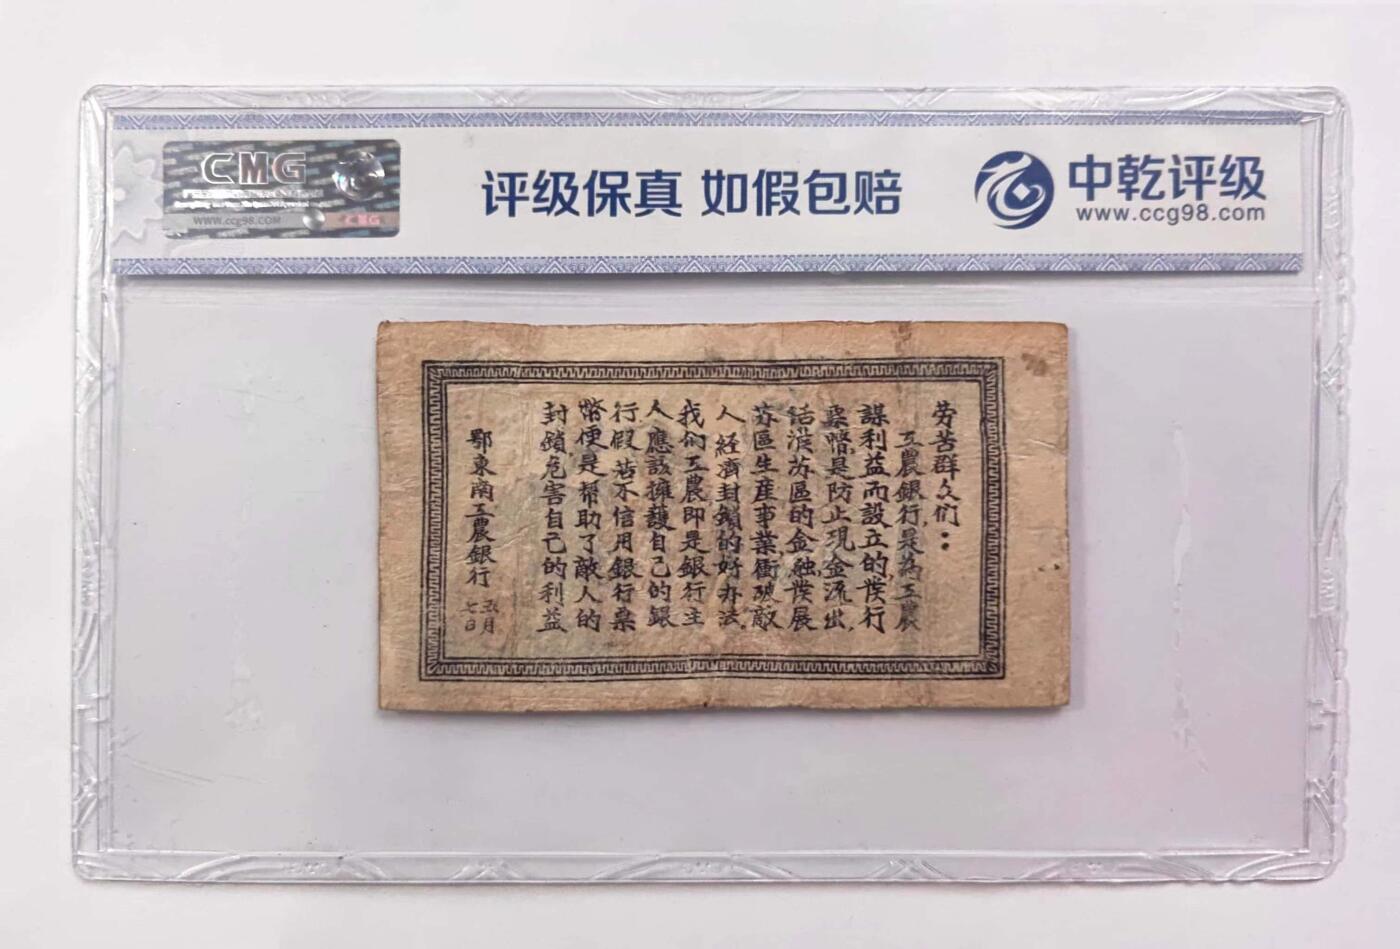 CMG
WWW.ccg98.COM
CMG
评级保真 如假包赔
中乾评级
www.ccg98.com
劳苦群众们：
工農銀行,是為工農
謀利益而設立的發行
票幣,是防止現金流出,
活潑苏區的金融發展
苏區生産事業衝破敵
人 經濟封鎖的好办法。
我们工農即是銀行主
人應該擁護自己的銀
行假 若不信用銀行票
幣便是帮助了敵人的
封鎖危害自己的利益
鄂東南工農銀行 五月
七日